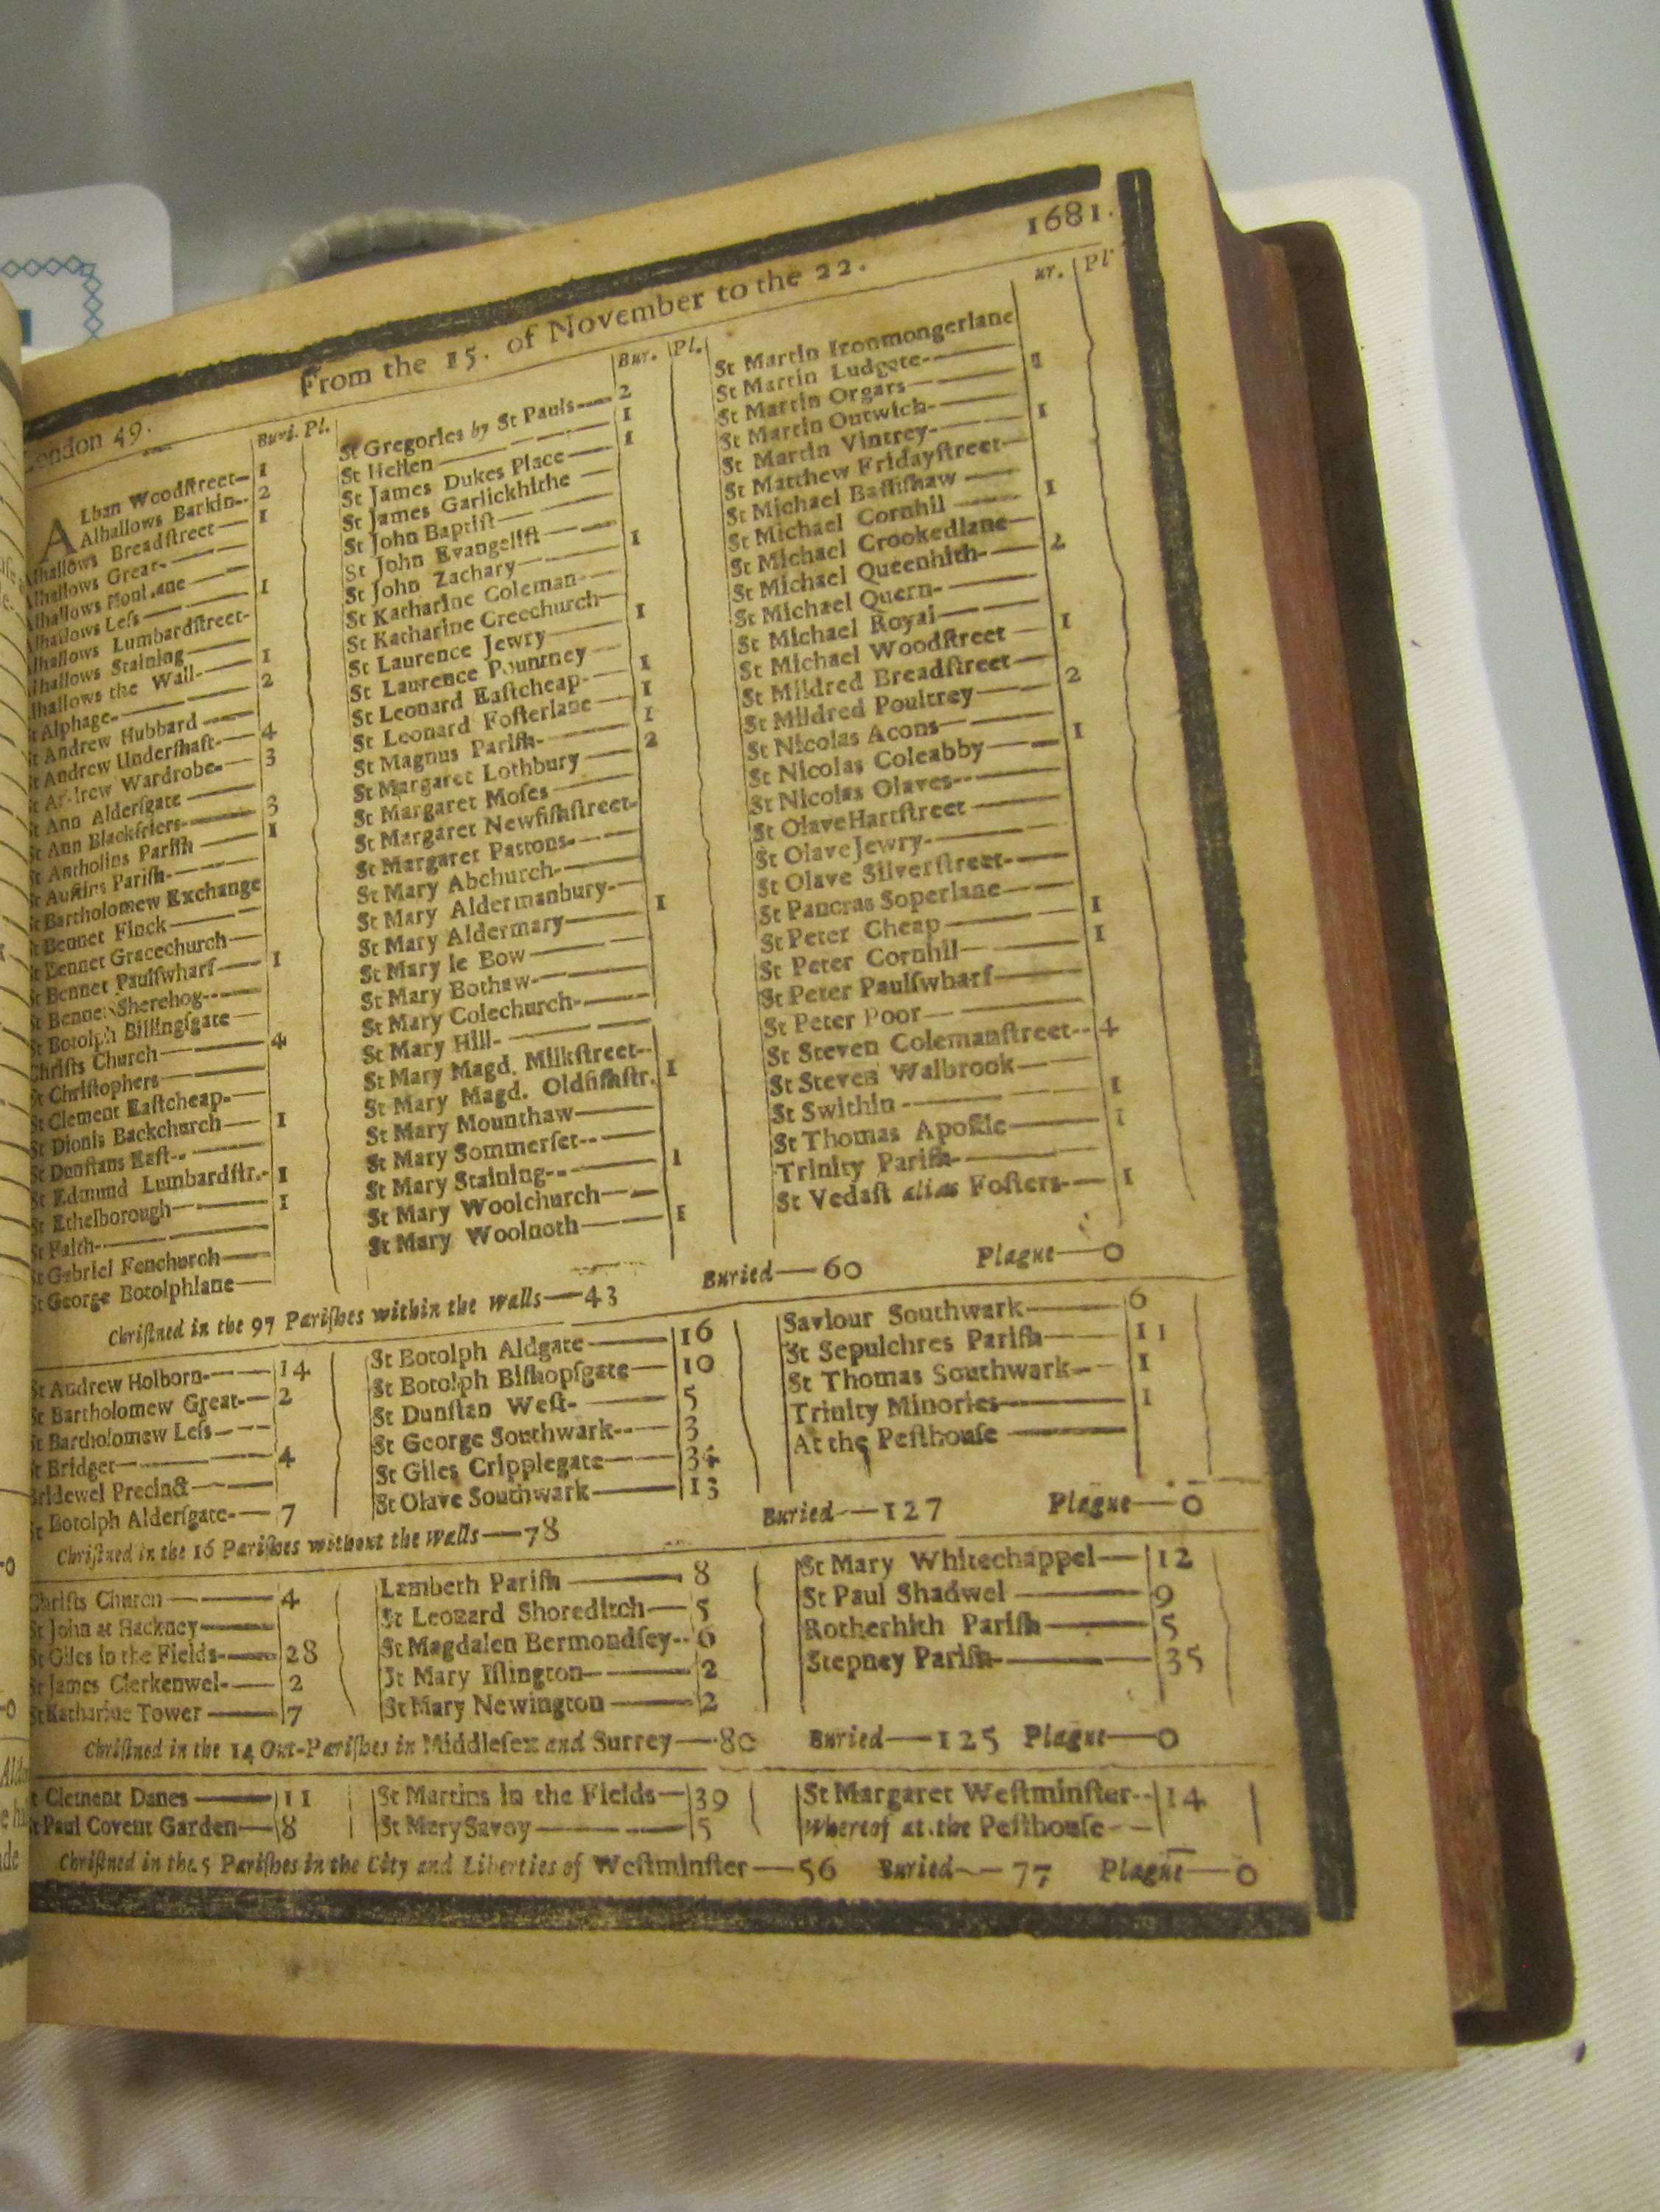 From the 15. of November to the 22. 1681.
London 49.
Buri. Pl.
ALban Woodſtreet— 1
Alhallows Barkin-- 2
Alhallows Breadſtreet— 1
Alhallows Great-
Alhallows
Alhallows Leſs 1
Alhallows Lumbardſtreet-
Alhallows Staining
Alhallows the Wall- 1
St Alphage- 2
St Andrew Hubbard
St Andrew Underſhaft- 4
St Andrew Wardrobe- 3
St Ann Alderſgate
St Ann Blackfriers- 3
St Antholins Pariſh 1
St Auſtins Pariſh-
St Bartholomew Exchange
St Bennet Finck
St Bennet Gracechurch
St Bennet Paulſwharf 1
St Bennet Sherehog
St Botolph Billingſgate
Chriſts Church 4
St Chriſtophers
St Clement Eaſtcheap-
St Dionis Backchurch 1
St Dunſtans Eaſt
St Edmund Lumbardſtr.- 1
St Ethelborough 1
St Faith-
St Gabriel Fenchurch
St George Botolphlane
Bur. Pl.
St Gregories by St Pauls 2
St Hellen 1
St James Dukes Place 1
St James Garlickhithe
St John Baptiſt
St John Evangeliſt
St John Zachary 1
St Katharine Coleman
St Katharine Creechurch
St Laurence Jewry 1
St Laurence Pountney
St Leonard Eaſtcheap- 1
St Leonard Foſterlane 1
St Magnus Pariſh- 1
St Margaret Lothbury 2
St Margaret Moſes
St Margaret Newfiſhſtreet-
St Margaret Pattons-
St Mary Abchurch-
St Mary Aldermanbury-
St Mary Aldermary 1
St Mary le Bow
St Mary Bothaw-
St Mary Colechurch-
St Mary Hill-
St Mary Magd. Milkſtreet--
St Mary Magd. Oldfiſhſtr. 1
St Mary Mounthaw
St Mary Sommerſet
St Mary Staining- 1
St Mary Woolchurch
St Mary Woolnoth 1
ur. Pl
St Martin Ironmongerlane
St Martin Ludgate- 1
St Martin Orgars
St Martin Outwich- 1
St Martin Vintrey-
St Matthew Fridayſtreet
St Michael Baſſiſhaw
St Michael Cornhil 1
St Michael Crookedlane
St Michael Queenhith- 2
St Michael Quern-
St Michael Royal
St Michael Woodſtreet 1
St Mildred Breadſtreet
St Mildred Poultrey 2
St Nicolas Acons
St Nicolas Coleabby 1
St Nicolas Olaves
St Olave Hartſtreet
St Olave Jewry-
St Olave Silverſtreet
St Pancras Soperlane
St Peter Cheap 1
St Peter Cornhil 1
St Peter Paulſwharf
St Peter Poor
St Steven Colemanſtreet-- 4
St Steven Walbrook
St Swithin 1
St Thomas Apoſtle 1
Trinity Pariſh-
St Vedaſt alias Foſters 1
Chriſtned in the 97 Pariſhes within the Walls—43 Buried—60 Plague—0
St Andrew Holborn- 14
St Bartholomew Great- 2
St Bartholomew Leſs
St Bridget 4
Bridewel Precinct
St Botolph Alderſgate- 7
St Botolph Aldgate 16
St Botolph Biſhopſgate 10
St Dunſtan Weſt- 5
St George Southwark-- 3
St Giles Cripplegate 34
St Olave Southwark 13
Saviour Southwark 6
St Sepulchres Pariſh 11
St Thomas Southwark 1
Trinity Minories 1
At the Peſthouſe
Chriſtned in the 16 Pariſhes without the Walls—78 Buried—127 Plague—0
Chriſts Church 4
St John at Hackney
St Giles in the Fields- 28
St James Clerkenwel- 2
St Katharine Tower 7
Lambeth Pariſh 8
St Leonard Shoreditch 5
St Magdalen Bermondſey-- 6
St Mary Iſlington 2
St Mary Newington 2
St Mary Whitechappel 12
St Paul Shadwel 9
Rotherhith Pariſh 5
Stepney Pariſh- 35
Chriſtned in the 14 Out-Pariſhes in Middleſex and Surrey—80 Buried—125 Plague—0
St Clement Danes 11
St Paul Covent Garden 8
St Martins in the Fields 39
St Mary Savoy 5
St Margaret Weſtminſter-- 14
Whereof at the Peſthouſe
Chriſtned in the 5 Pariſhes in the City and Liberties of Weſtminſter—56 Buried—77 Plague—0